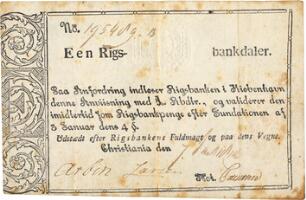 No. 195489. B
Een Rigs- bankdaler.
Paa Anfordring indløser Rigsbanken i Kiøbenhavn
denne Anviisning med 1 Rbdlr., og validerer den
imidlertid som Rigsbankpenge efter Fundationen af
5 Januar dens 4 §.
Udstædt efter Rigsbankens Fuldmagt og paa dens Vegne.
Christiania den